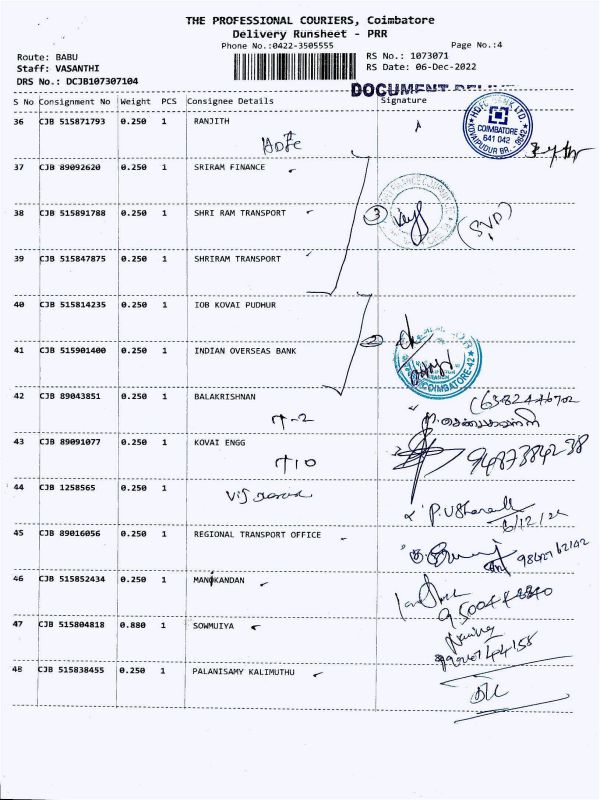 THE PROFESSIONAL COURIERS, Coimbatore
Delivery Runsheet - PRR
Phone No.:0422-3505555
Page No.:4
Route: BABU
RS No.: 1073071
Staff: VASANTHI
RS Date: 06-Dec-2022
DRS No.: DCJB107307104
DOCUMENT
S No Consignment No Weight PCS Consignee Details Signature
36 CJB 515871793 0.250 1 RANJITH
HDFC BANK LTD.
COIMBATORE
641 042
KOVAIPUDUR BR.
37 CJB 89092620 0.250 1 SRIRAM FINANCE
38 CJB 515891788 0.250 1 SHRI RAM TRANSPORT
3
39 CJB 515847875 0.250 1 SHRIRAM TRANSPORT
40 CJB 515814235 0.250 1 IOB KOVAI PUDHUR
2
41 CJB 515901400 0.250 1 INDIAN OVERSEAS BANK
COIMBATORE-42
42 CJB 89043851 0.250 1 BALAKRISHNAN
43 CJB 89091077 0.250 1 KOVAI ENGG
9487384238
44 CJB 1258565 0.250 1
6/12/22
45 CJB 89016056 0.250 1 REGIONAL TRANSPORT OFFICE
46 CJB 515852434 0.250 1 MANIKANDAN
47 CJB 515804818 0.880 1 SOWMUIYA
48 CJB 515838455 0.250 1 PALANISAMY KALIMUTHU